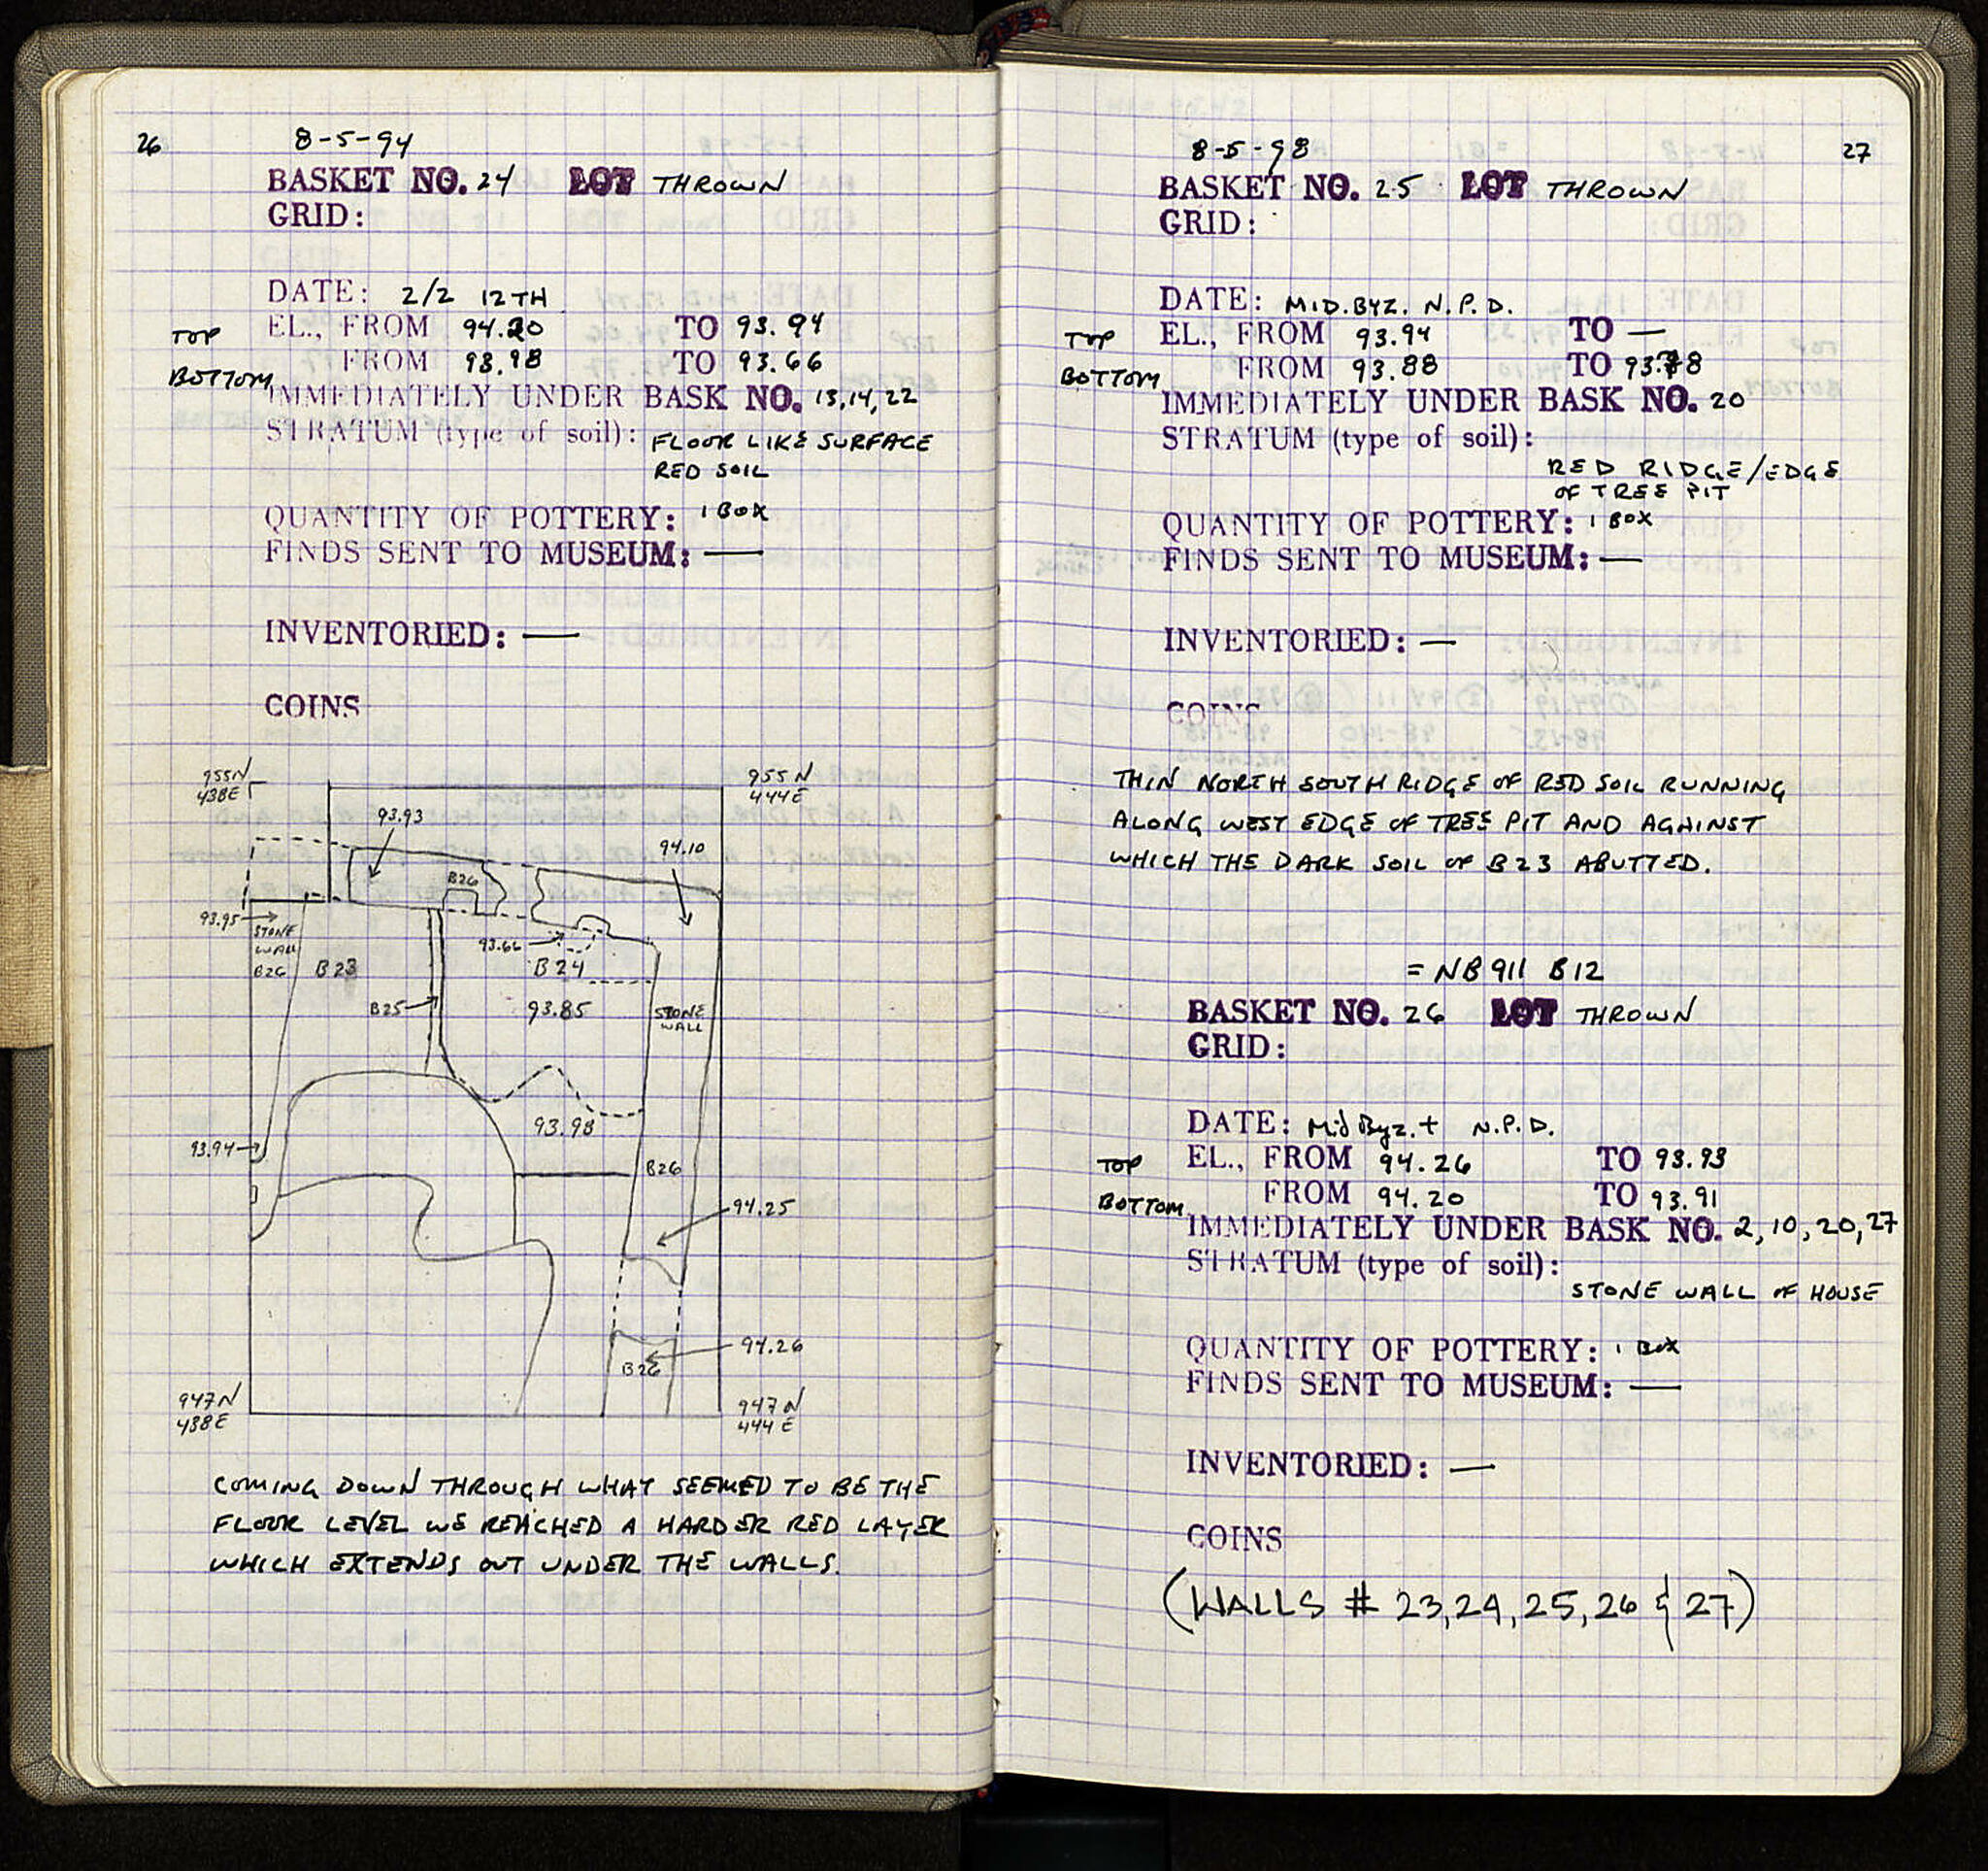 26
8-5-94
BASKET NO. 24 LOT THROWN
GRID:
DATE: 2/2 12TH
TOP EL., FROM 94.20 TO 93.94
BOTTOM FROM 93.98 TO 93.66
IMMEDIATELY UNDER BASK NO. 13,14,22
STRATUM (type of soil): FLOOR LIKE SURFACE
RED SOIL
QUANTITY OF POTTERY: 1 BOX
FINDS SENT TO MUSEUM: —
INVENTORIED: —
COINS
955N
438E
955N
444E
93.93
94.10
B26
93.95
STONE
WALL
B26
B23
93.66
B24
B25
93.85
STONE
WALL
93.98
93.94
B26
94.25
94.26
B26
947N
438E
947N
444E
COMING DOWN THROUGH WHAT SEEMED TO BE THE
FLOOR LEVEL WE REACHED A HARDER RED LAYER
WHICH EXTENDS OUT UNDER THE WALLS.
27
8-5-98
BASKET NO. 25 LOT THROWN
GRID:
DATE: MID.BYZ. N.P.D.
TOP EL., FROM 93.94 TO —
BOTTOM FROM 93.88 TO 93.78
IMMEDIATELY UNDER BASK NO. 20
STRATUM (type of soil):
RED RIDGE/EDGE
OF TREE PIT
QUANTITY OF POTTERY: 1 BOX
FINDS SENT TO MUSEUM: —
INVENTORIED: —
COINS
THIN NORTH SOUTH RIDGE OF RED SOIL RUNNING
ALONG WEST EDGE OF TREE PIT AND AGAINST
WHICH THE DARK SOIL OF B23 ABUTTED.
= NB 911 B12
BASKET NO. 26 LOT THROWN
GRID:
DATE: Mid Byz.+ N.P.D.
TOP EL., FROM 94.26 TO 93.93
BOTTOM FROM 94.20 TO 93.91
IMMEDIATELY UNDER BASK NO. 2,10,20,27
STRATUM (type of soil):
STONE WALL OF HOUSE
QUANTITY OF POTTERY: 1 BOX
FINDS SENT TO MUSEUM: —
INVENTORIED: —
COINS
(WALLS # 23,24,25,26 & 27)